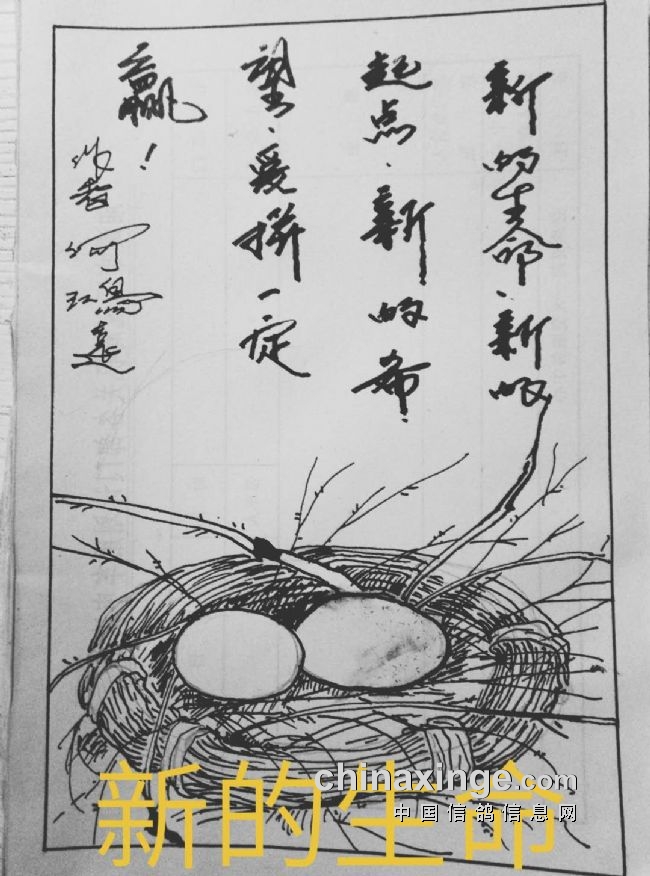 新的生命、新的
起点、新的希
望、爱拼一定
赢！
chinaxinge.com
中国信鸽信息网
新的生命